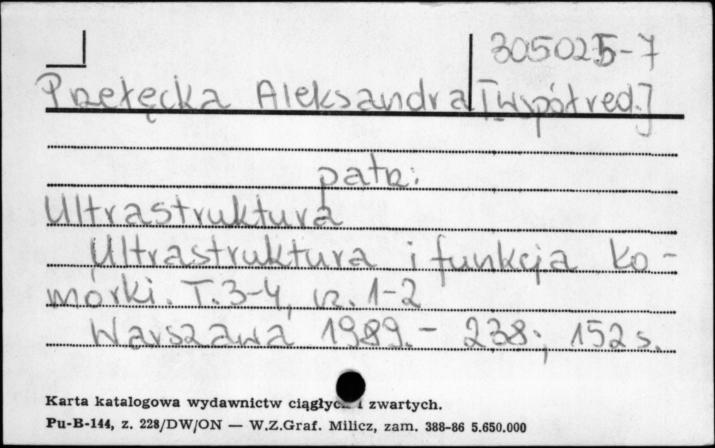 305025-7
Przełęcka Aleksandra [współred.]
patrz:
Ultrastruktura
Ultrastruktura i funkcja ko-
mórki. T. 3-4, cz. 1-2
Warszawa 1989. - 238; 152 s.
Karta katalogowa wydawnictw ciągłych i zwartych.
Pu-B-144, z. 228/DW/ON — W.Z.Graf. Milicz, zam. 388-86 5.650.000